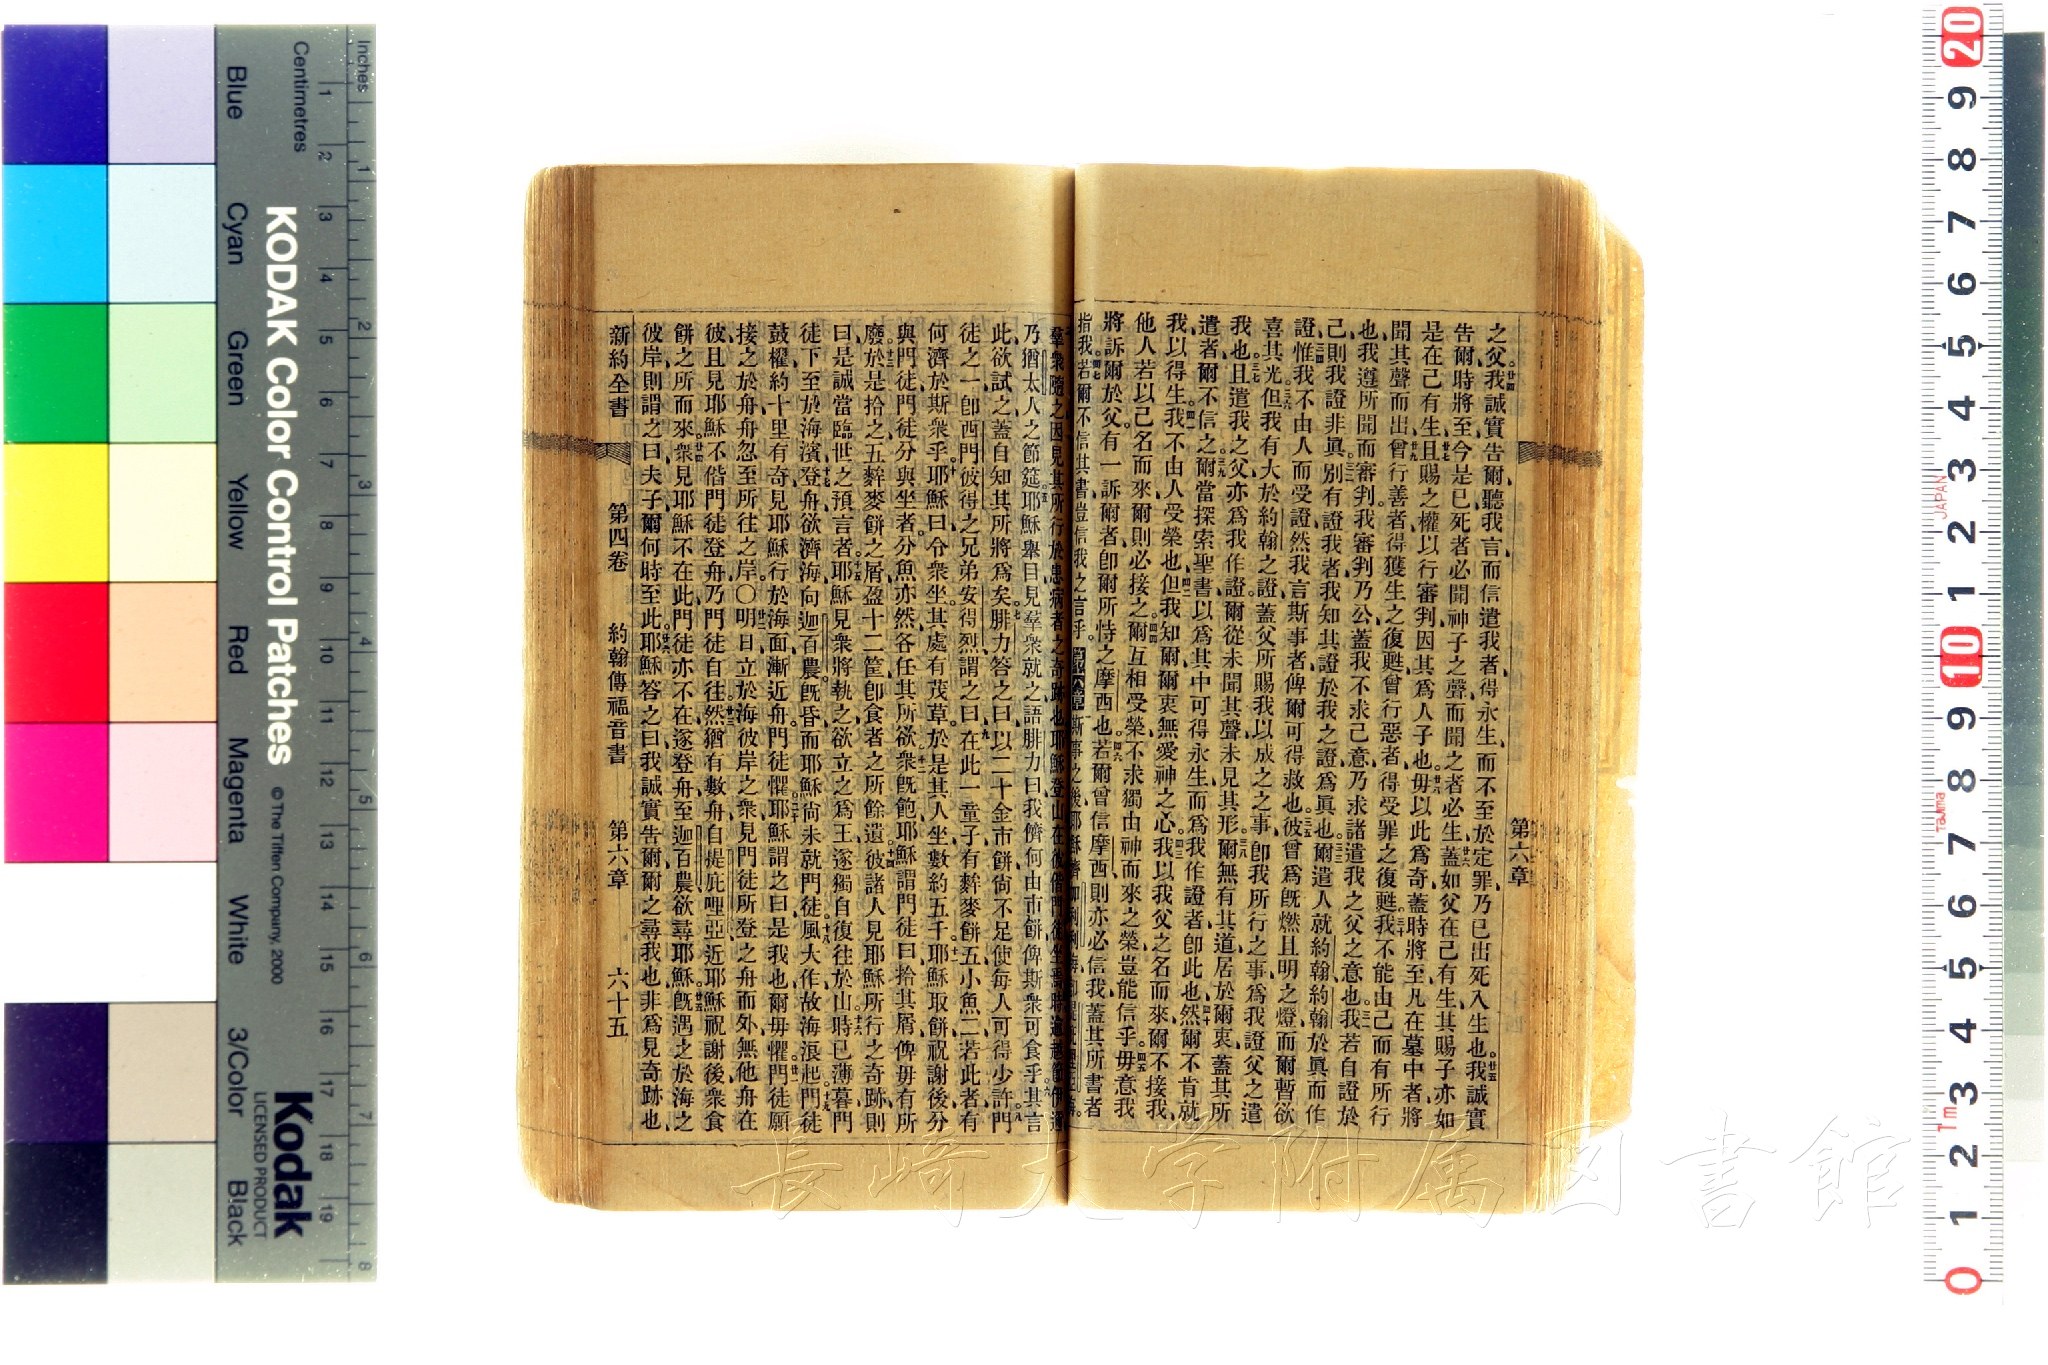 之父我誠實告爾聽我言而信遣我者得永生而不至於定罪乃已出死入生也我誠實
告爾時將至今是已死者必聞神子之聲而聞之者必生蓋如父在己有生其賜子亦如
是在己有生且賜之權以行審判因其爲人子也毋以此爲奇蓋時將至凡在墓中者將
聞其聲而出曾行善者得獲生之復甦曾行惡者得受罪之復甦我不能由己而有所行
也我遵所聞而審判我審判乃公蓋我不求己意乃求諸遣我之父之意也我若自證於
己則我證非眞別有證我者我知其證於我之證爲眞也爾遣人就約翰約翰於眞而作
證惟我不由人而受證然我言斯事者俾爾可得救也彼曾爲旣燃且明之燈而爾暫欲
喜其光但我有大於約翰之證蓋父所賜我以成之之事卽我所行之事爲我證父之遣
我也且遣我之父亦爲我作證爾從未聞其聲未見其形爾無有其道居於爾衷蓋其所
遣者爾不信之爾當探索聖書以爲其中可得永生而爲我作證者卽此也然爾不肯就
我以得生我不由人受榮也但我知爾爾衷無愛神之心我以我父之名而來爾不接我
他人若以己名而來爾則必接之爾互相受榮不求獨由神而來之榮豈能信乎毋意我
將訴爾於父有一訴爾者卽爾所恃之摩西也若爾曾信摩西則亦必信我蓋其所書者
指我若爾不信其書豈信我之言乎
第六章
斯事之後耶穌濟
第六章
羣衆隨之因見其所行於患病者之奇跡也耶穌登山在彼偕門徒坐焉時逾越節
乃猶太人之節筵耶穌舉目見羣衆就之語腓力曰我儕何由市餅俾斯衆可食乎其言
此欲試之蓋自知其所將爲矣腓力答之曰以二十金市餅尙不足使每人可得少許門
徒之一卽西門彼得之兄弟安得烈謂之曰在此一童子有麰麥餅五小魚二若此者有
何濟於斯衆乎耶穌曰令衆坐其處有茂草於是其人坐數約五千耶穌取餅祝謝後分
與門徒門徒分與坐者分魚亦然各任其所欲衆旣飽耶穌謂門徒曰拾其屑俾毋有所
廢於是拾之五麰麥餅之屑盈十二筐卽食者之所餘遺彼諸人見耶穌所行之奇跡則
曰是誠當臨世之預言者耶穌見衆將執之欲立之爲王遂獨自復往於山時已薄暮門
徒下至於海濱登舟欲濟海向迦百農旣昏而耶穌尙未就門徒風大作故海浪起門徒
鼓櫂約十里有奇見耶穌行於海面漸近舟門徒懼耶穌謂之曰是我也爾毋懼門徒願
接之於舟舟忽至所往之岸〇明日立於海彼岸之衆見門徒所登之舟而外無他舟在
彼且見耶穌不偕門徒登舟乃門徒自往然猶有數舟自提庇哩亞近耶穌祝謝後衆食
餅之所而來衆見耶穌不在此門徒亦不在遂登舟至迦百農欲尋耶穌旣遇之於海之
彼岸則謂之曰夫子爾何時至此耶穌答之曰我誠實告爾爾之尋我也非爲見奇跡也
新約全書 第四卷 約翰傳福音書 第六章 六十五
長崎大学附属図書館
KODAK Color Control Patches
© The Tiffen Company, 2000
Kodak
LICENSED PRODUCT
Inches 1 2 3 4 5 6 7 8
Centimetres 1 2 3 4 5 6 7 8 9 10 11 12 13 14 15 16 17 18 19
Blue Cyan Green Yellow Red Magenta White 3/Color Black
20 9 8 7 6 5 4 3 2 1 10 9 8 7 6 5 4 3 2 1 0
JAPAN
Tajima
Tm